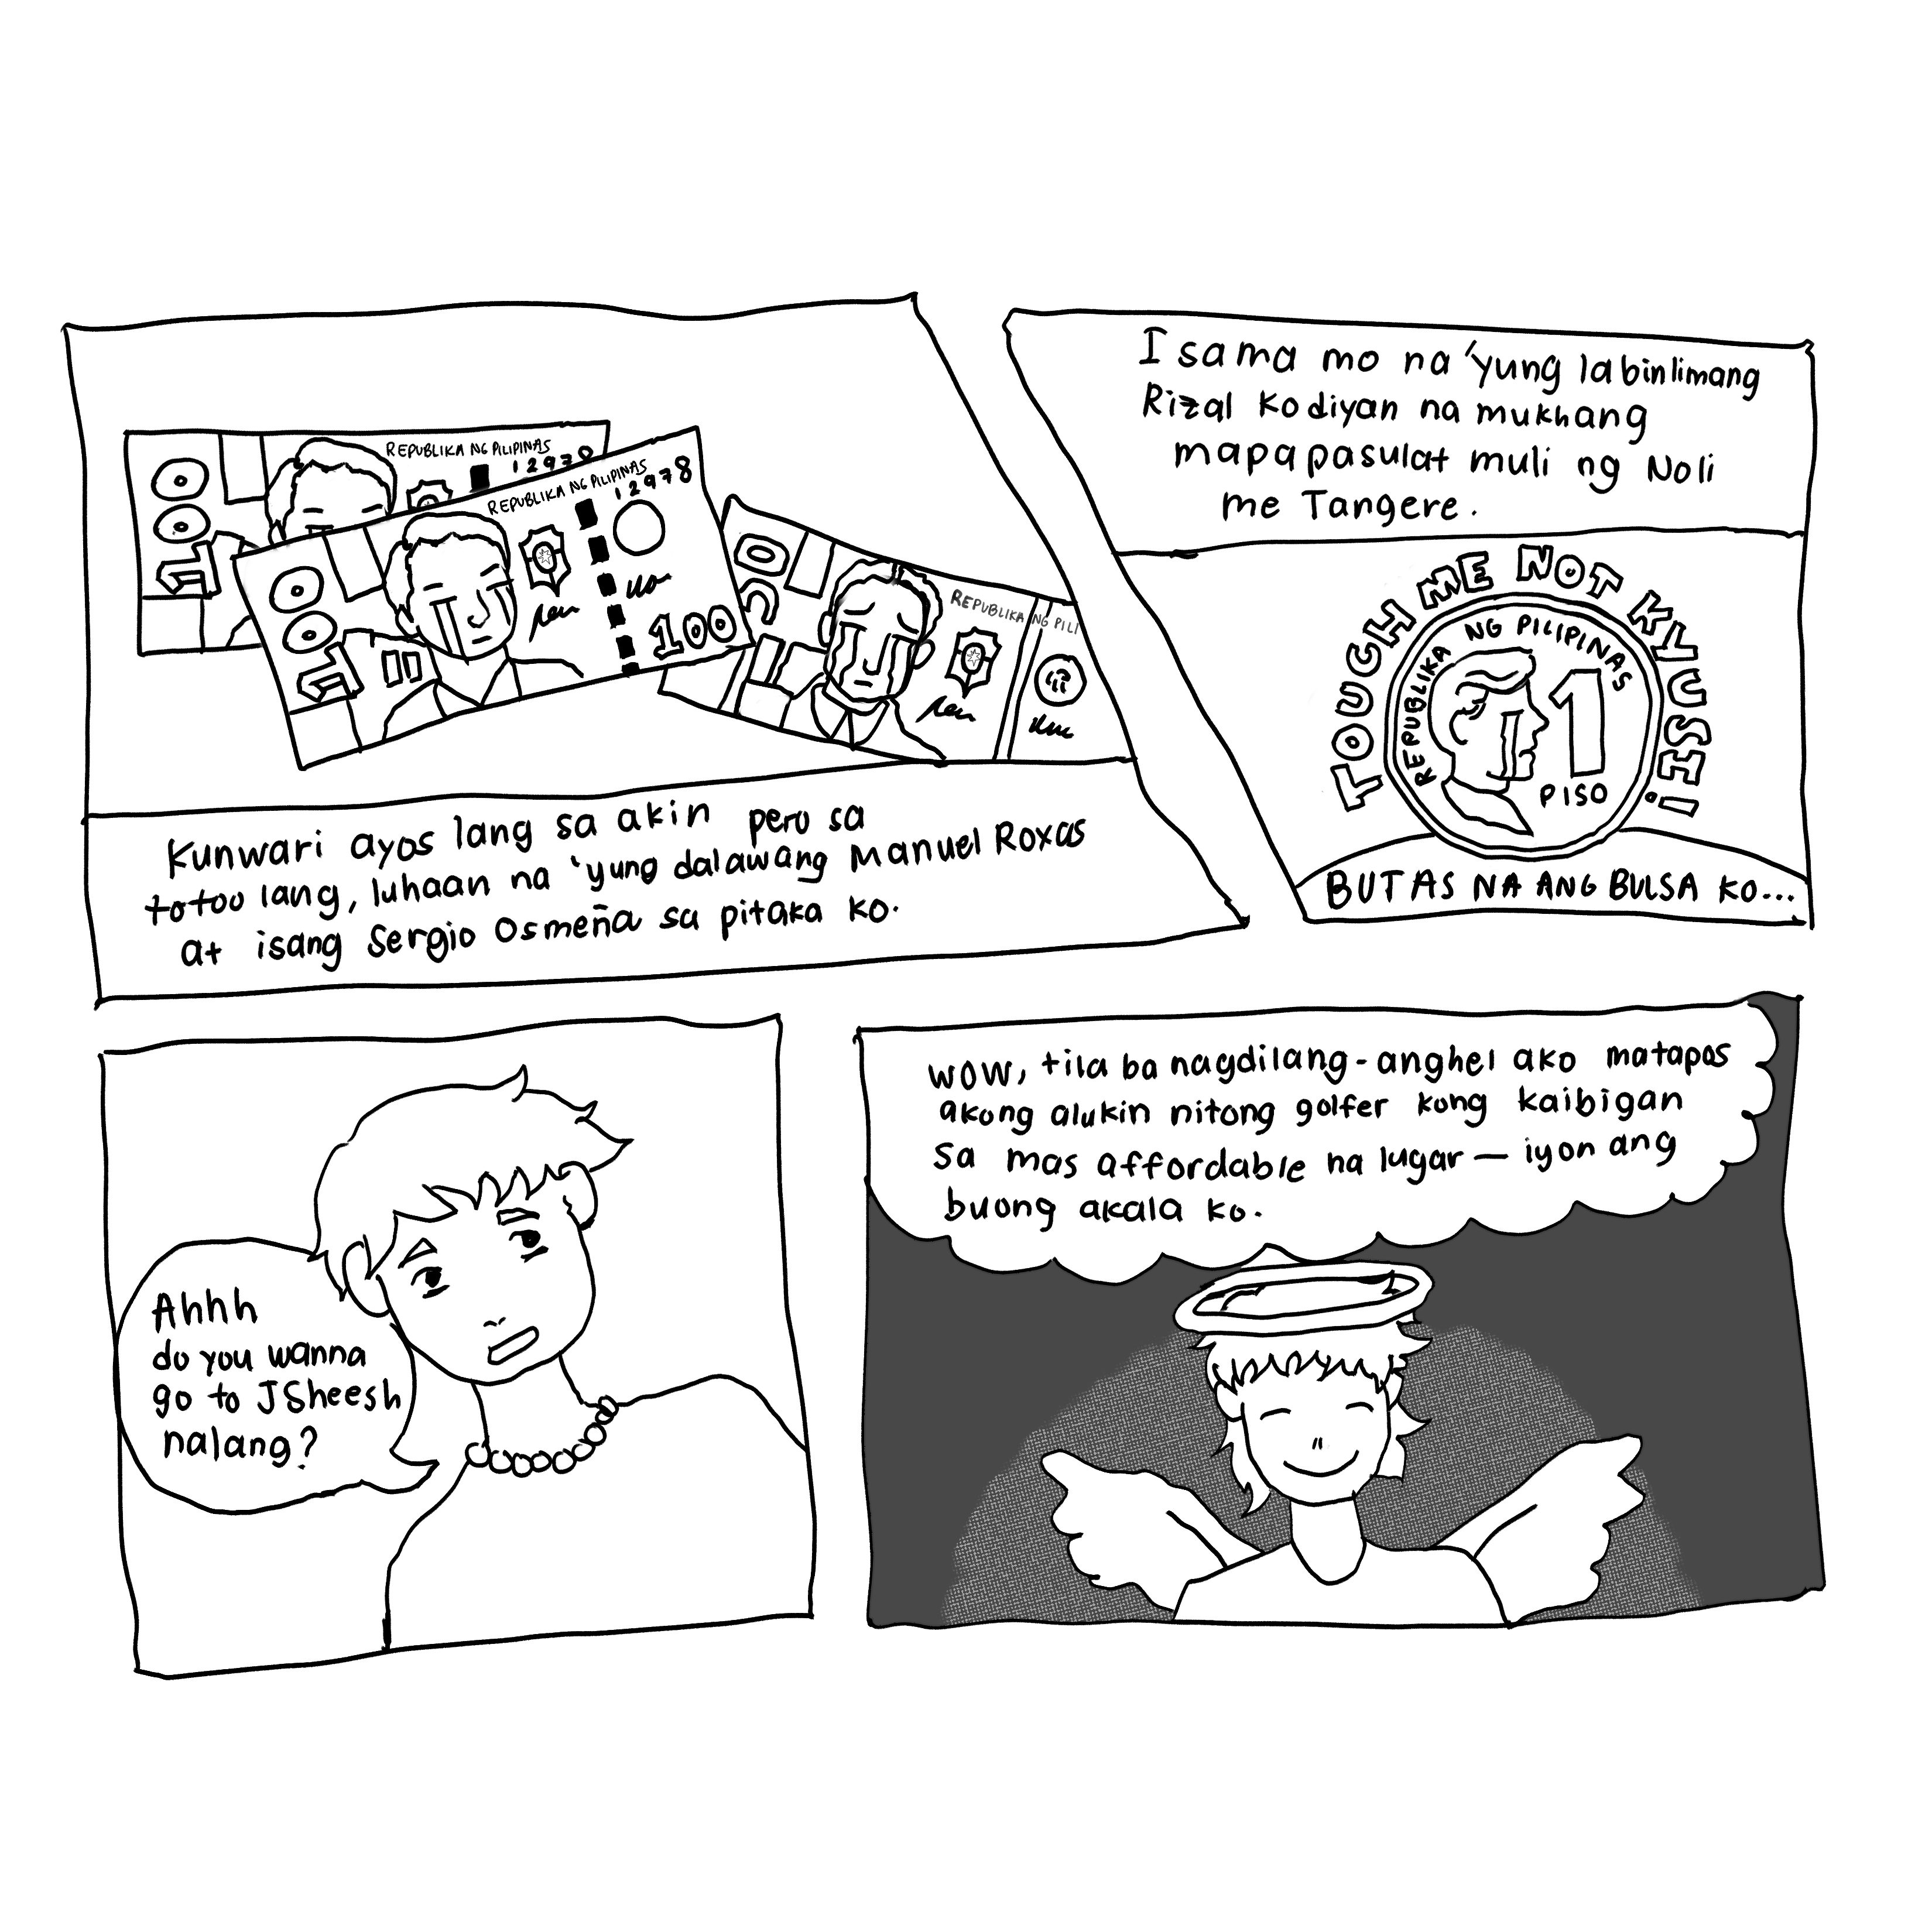 100
REPUBLIKA NG PILIPINAS
12978
100
REPUBLIKA NG PILIPINAS
12978
100
50
REPUBLIKA NG PILI
Kunwari ayos lang sa akin pero sa
totoo lang, luhaan na 'yung dalawang Manuel Roxas
at isang Sergio Osmeña sa pitaka ko.
Isama mo na 'yung labinlimang
Rizal ko diyan na mukhang
mapapasulat muli ng Noli
me Tangere.
TOUCH ME NOT KLUSH!
REPUBLIKA NG PILIPINAS
1
PISO
BUTAS NA ANG BULSA KO...
Ahhh
do you wanna
go to JSheesh
nalang?
WOW, tila ba nagdilang-anghel ako matapos
akong alukin nitong golfer kong kaibigan
sa mas affordable na lugar — iyon ang
buong akala ko.